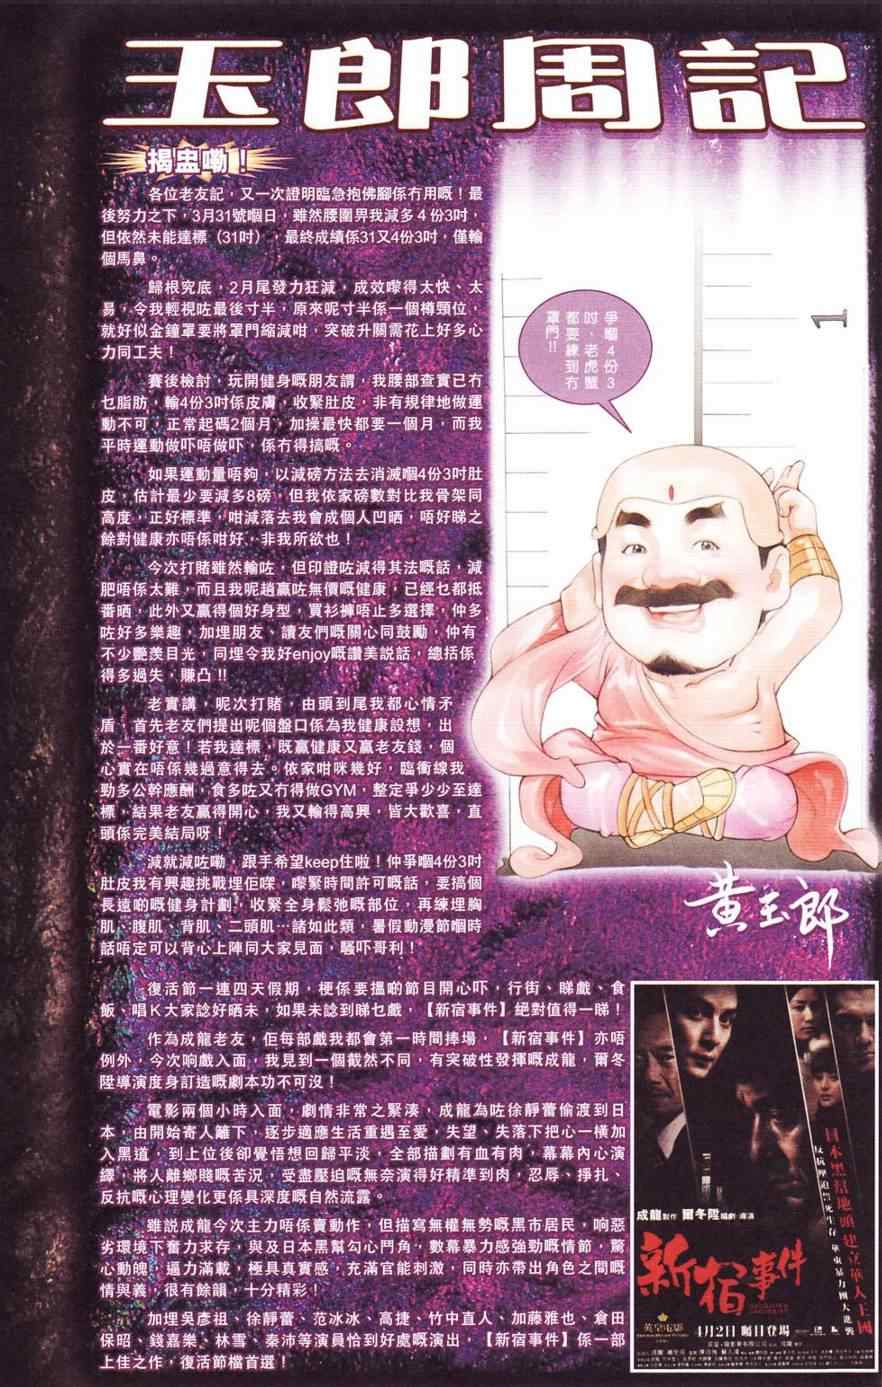 玉郎周記
揭盅嘞！
各位老友記，又一次證明臨急抱佛腳係冇用嘅！最
後努力之下，3月31號嗰日，雖然腰圍畀我減多４份3吋，
但依然未能達標（31吋），最終成績係31又4份3吋，僅輸
個馬鼻。
歸根究底，2月尾發力狂減，成效嚟得太快、太
易，令我輕視咗最後寸半，原來呢寸半係一個樽頸位，
就好似金鐘罩要將罩門縮減咁，突破升關需花上好多心
力同工夫！
賽後檢討，玩開健身嘅朋友謂，我腰部查實已冇
乜脂肪，輸4份3吋係皮膚，收緊肚皮，非有規律地做運
動不可，正常起碼2個月，加操最快都要一個月，而我
平時運動做吓唔做吓，係冇得搞嘅。
如果運動量唔夠，以減磅方法去消滅嗰4份3吋肚
皮，估計最少要減多8磅，但我依家磅數對比我骨架同
高度，正好標準，咁減落去我會成個人凹晒，唔好睇之
餘對健康亦唔係咁好，非我所欲也！
今次打賭雖然輸咗，但印證咗減得其法嘅話，減
肥唔係太難，而且我呢趟贏咗無價嘅健康，已經乜都抵
番晒，此外又贏得個好身型，買衫褲唔止多選擇，仲多
咗好多樂趣，加埋朋友、讀友們嘅關心同鼓勵，仲有
不少艷羨目光，同埋令我好enjoy嘅讚美說話，總括係
得多過失，賺凸!!
老實講，呢次打賭，由頭到尾我都心情矛
盾，首先老友們提出呢個盤口係為我健康設想，出
於一番好意！若我達標，既贏健康又贏老友錢，個
心實在唔係幾過意得去。依家咁咪幾好，臨衝線我
勁多公幹應酬，食多咗又冇得做GYM，整定爭少少至達
標，結果老友贏得開心，我又輸得高興，皆大歡喜，直
頭係完美結局呀！
減就減咗嘞，跟手希望keep住啦！仲爭嗰4份3吋
肚皮我有興趣挑戰埋佢㗎，嚟緊時間許可嘅話，要搞個
長遠啲嘅健身計劃，收緊全身鬆弛嘅部位，再練埋胸
肌、腹肌、背肌、二頭肌…諸如此類，暑假動漫節嗰時
話唔定可以背心上陣同大家見面，騷吓哥利！
復活節一連四天假期，梗係要搵啲節目開心吓，行街、睇戲、食
飯、唱Ｋ大家諗好晒未，如果未諗到睇乜戲，【新宿事件】絕對值得一睇！
作為成龍老友，佢每部戲我都會第一時間捧場，【新宿事件】亦唔
例外，今次响戲入面，我見到一個截然不同，有突破性發揮嘅成龍，爾冬
陞導演度身訂造嘅劇本功不可沒！
電影兩個小時入面，劇情非常之緊湊，成龍為咗徐靜蕾偷渡到日
本，由開始寄人籬下，逐步適應生活重遇至愛，失望、失落下把心一橫加
入黑道，到上位後卻覺悟想回歸平淡，全部描劃有血有肉，幕幕內心演
繹，將人離鄉賤嘅苦況，受盡壓迫嘅無奈演得好精準到肉，忍辱、掙扎、
反抗嘅心理變化更係具深度嘅自然流露。
雖說成龍今次主力唔係賣動作，但描寫無權無勢嘅黑市居民，响惡
劣環境下奮力求存，與及日本黑幫勾心鬥角，數幕暴力感強勁嘅情節，驚
心動魄，逼力滿載，極具真實感，充滿官能刺激，同時亦帶出角色之間嘅
情與義，很有餘韻，十分精彩！
加埋吳彥祖、徐靜蕾、范冰冰、高捷、竹中直人、加藤雅也、倉田
保昭、錢嘉樂、林雪、秦沛等演員恰到好處嘅演出，【新宿事件】係一部
上佳之作，復活節檔首選！
爭嗰4份3
吋，老虎蟹
都要練到冇
罩門!!
1
黃玉郎
日本黑幫地頭建立華人王國
反抗壓迫誓死生存 華東暴力團大進襲
成龍製作 爾冬陞編劇／導演
新宿事件
英皇電影
4月2日 矚目登場